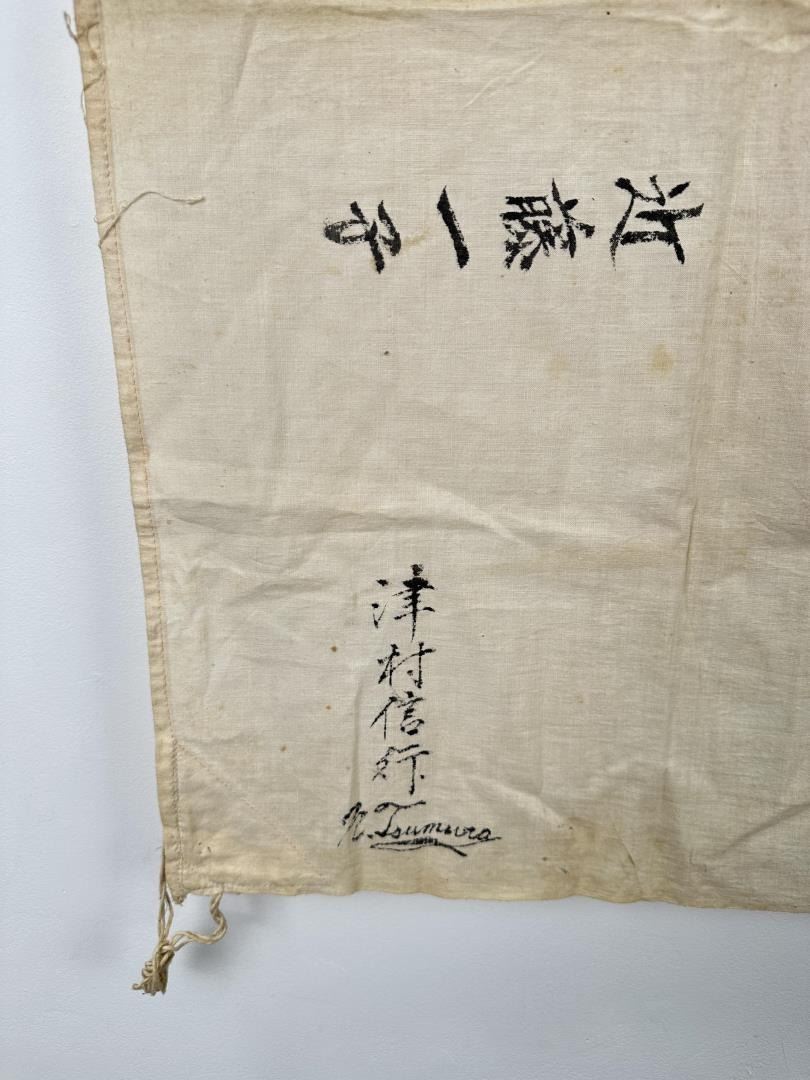 近藤一
津村信行
N. Tsumura